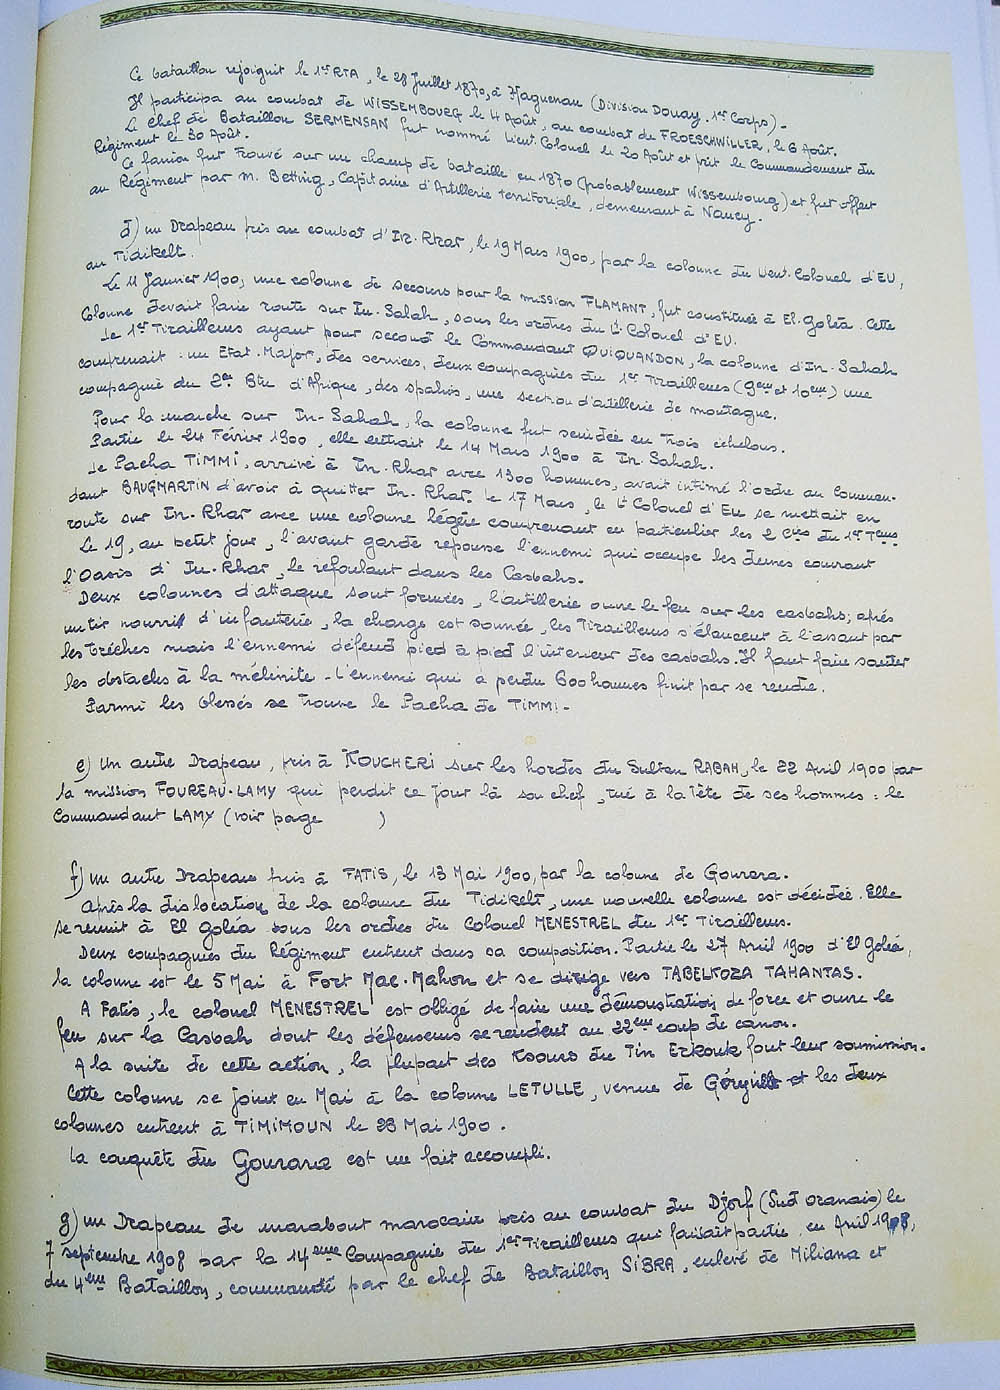 Ce bataillon rejoignit le 1er RTA, le 28 Juillet 1870, à Haguenau (Division Douay. 1er Corps)-
Il participa au combat de WISSEMBOURG le 4 Août, au combat de FROESCHWILLER, le 6 Août.
Le Chef de Bataillon SERMENSAN fut nommé Lieut. Colonel le 20 Août et prit le Commandement du
Régiment le 30 Août.
Ce fanion fut trouvé sur un champ de bataille en 1870 (probablement Wissembourg) et fut offert
au Régiment par M. Betting, Capitaine d'Artillerie territoriale, demeurant à Nancy.
d) un Drapeau pris au combat d'In-Rhar, le 19 Mars 1900, par la colonne du Lieut. Colonel d'EU,
au Tidikelt.
Le 11 Janvier 1900, une colonne de secours pour la mission FLAMANT, fut constituée à El-Goléa. Cette
Colonne devait faire route sur In-Salah, sous les ordres du Lt Colonel d'EU.
Le 1er Tirailleurs ayant pour second le Commandant QUIQUANDON, la colonne d'In-Sahah
comprenait : un Etat-Major, des services, deux compagnies du 1er Tirailleurs (9eme et 10eme) une
compagnie du 2e Btn d'Afrique, des spahis, une section d'artillerie de montagne.
Pour la marche sur In-Sahah, la colonne fut scindée en trois échelons.
Partie le 24 Février 1900, elle entrait le 14 Mars 1900 à In Sahah.
Le Pacha TIMMI, arrivé à In-Rhar avec 1300 hommes, avait intimé l'ordre au Comman-
dant BAUGMARTIN d'avoir à quitter In-Rhar. Le 17 Mars, le Lt Colonel d'Eu se mettait en
route sur In-Rhar avec une colonne légère comprenant en particulier les 2 Cies du 1er Teurs
Le 19, au petit jour, l'avant garde repousse l'ennemi qui occupe les dunes couvrant
l'Oasis d'In-Rhar, le refoulant dans les Casbahs.
Deux colonnes d'attaque sont formées, l'artillerie ouvre le feu sur les casbahs; après
un tir nourri d'infanterie, la charge est sonnée, les Tirailleurs s'élancent à l'assaut par
les brèches mais l'ennemi défend pied à pied l'intérieur des casbahs. Il faut faire sauter
les obstacles à la mélinite - L'ennemi qui a perdu 600 hommes finit par se rendre.
Parmi les blessés se trouve le Pacha de TIMMI-
e) Un autre Drapeau, pris à KOUCHERI sur les hordes du Sultan RABAH, le 22 Avril 1900 par
la mission FOUREAU-LAMY qui perdit ce jour là son chef, tué à la tête de ses hommes : le
Commandant LAMY (voir page )
f) un autre Drapeau pris à FATIS, le 13 Mai 1900, par la colonne de Gourara.
Après la dislocation de la colonne du Tidikelt, une nouvelle colonne est décidée. Elle
se réunit à El goléa sous les ordres du Colonel MENESTREL du 1er Tirailleurs.
Deux compagnies du Régiment entrent dans sa composition. Partie le 27 Avril 1900 d'El Goléa,
la colonne est le 5 Mai à Fort Mac-Mahon et se dirige vers TABELKOZA TAHANTAS.
A Fatis, le colonel MENESTREL est obligé de faire une démonstration de force et ouvre le
feu sur la Casbah dont les défenseurs se rendent au 22eme coup de canon.
A la suite de cette action, la plupart des Ksours du Tin Erkouk font leur soumission.
Cette colonne se joint en Mai à la colonne LETULLE, venue de Géryville et les deux
colonnes entrent à TIMIMOUN le 23 Mai 1900.
La conquête du Gourara est un fait accompli.
g) un Drapeau de marabout marocain pris au combat du Djorf (Sud oranais) le
7 septembre 1908 par la 14eme Compagnie du 1er Tirailleurs qui faisait partie, en Avril 1908,
du 4eme Bataillon, commandé par le chef de Bataillon SIBRA, enlevé de Miliana et